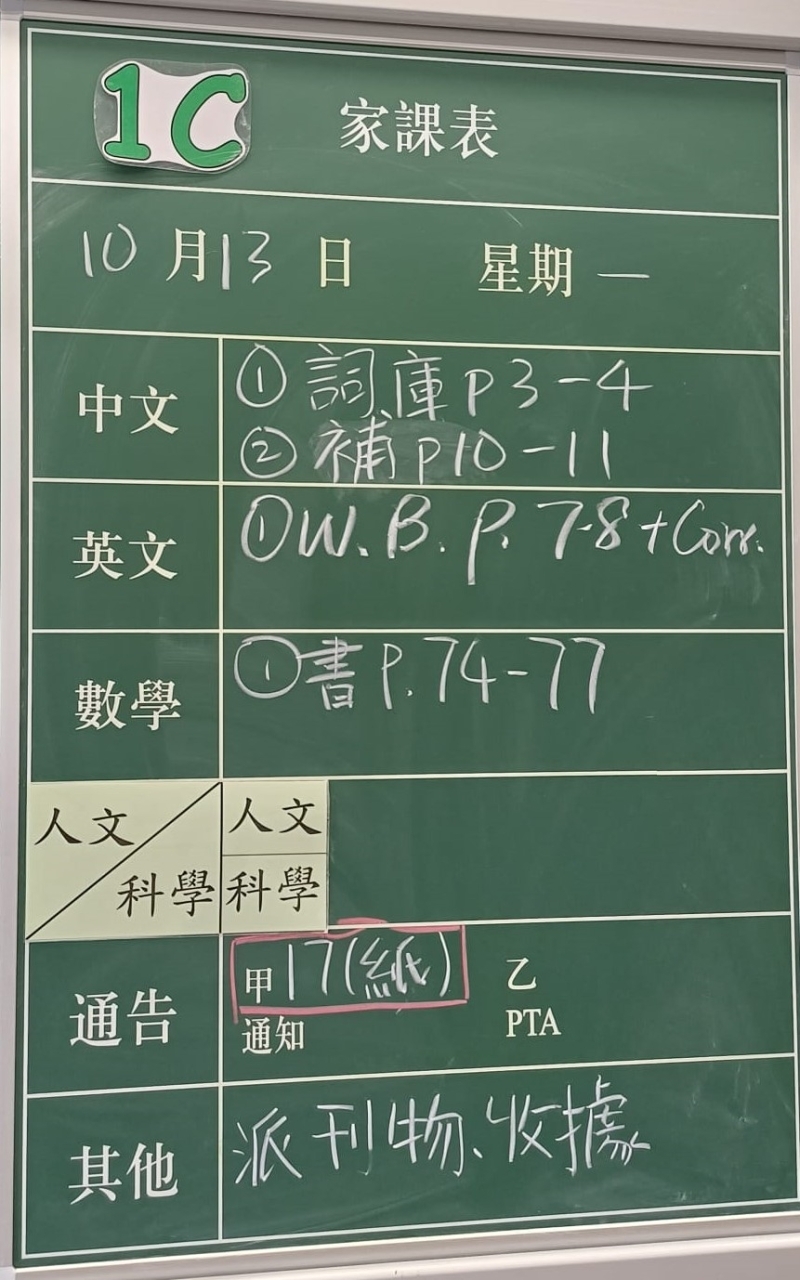 1C 家課表
10月13日 星期一
中文 ①詞庫p3-4
②補p10-11
英文 ①W.B.P. 7-8+Corr.
數學 ①書P.74-77
人文/科學 人文
科學
通告 甲17(紙) 乙
通知 PTA
其他 派刊物、收據